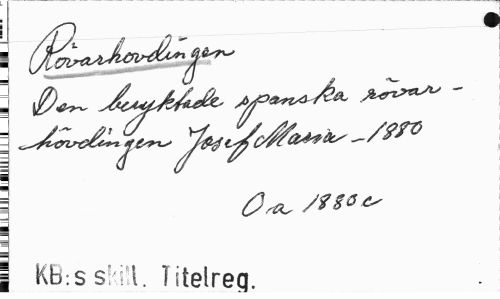 Rövarhövdingen
Den beryktade spanska rövar-
hövdingen Josef Maria - 1880
Oa 1880c
KB:s skill. Titelreg.